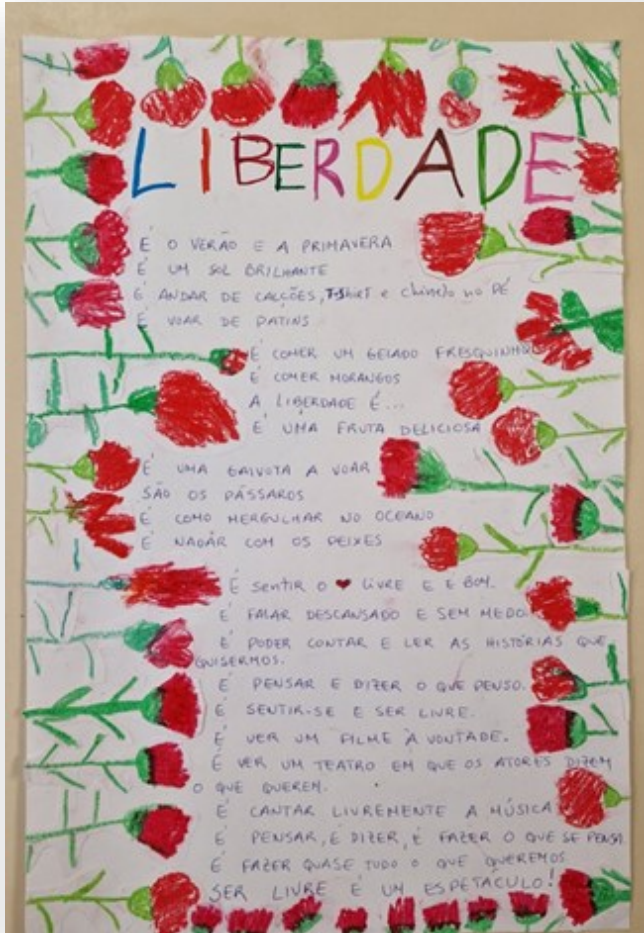 LIBERDADE
É O VERÃO E A PRIMAVERA
É UM SOL BRILHANTE
É ANDAR DE CALÇÕES, T-Shirt e chinelo no PÉ
É VOAR DE PATINS
É COMER UM GELADO FRESQUINHO
É COMER MORANGOS
A LIBERDADE É...
É UMA FRUTA DELICIOSA
É UMA GAIVOTA A VOAR
SÃO OS PÁSSAROS
É COMO MERGULHAR NO OCEANO
É NADAR COM OS PEIXES
É sentir o ❤ LIVRE E É BOM.
É FALAR DESCANSADO E SEM MEDO.
É PODER CONTAR E LER AS HISTÓRIAS QUE
QUISERMOS.
É PENSAR E DIZER O QUE PENSO.
É SENTIR-SE E SER LIVRE.
É VER UM FILME À VONTADE.
É VER UM TEATRO EM QUE OS ATORES DIZEM
O QUE QUEREM.
É CANTAR LIVREMENTE A MÚSICA
É PENSAR, É DIZER, É FAZER O QUE SE PENSA.
É FAZER QUASE TUDO O QUE QUEREMOS
SER LIVRE É UM ESPETÁCULO!